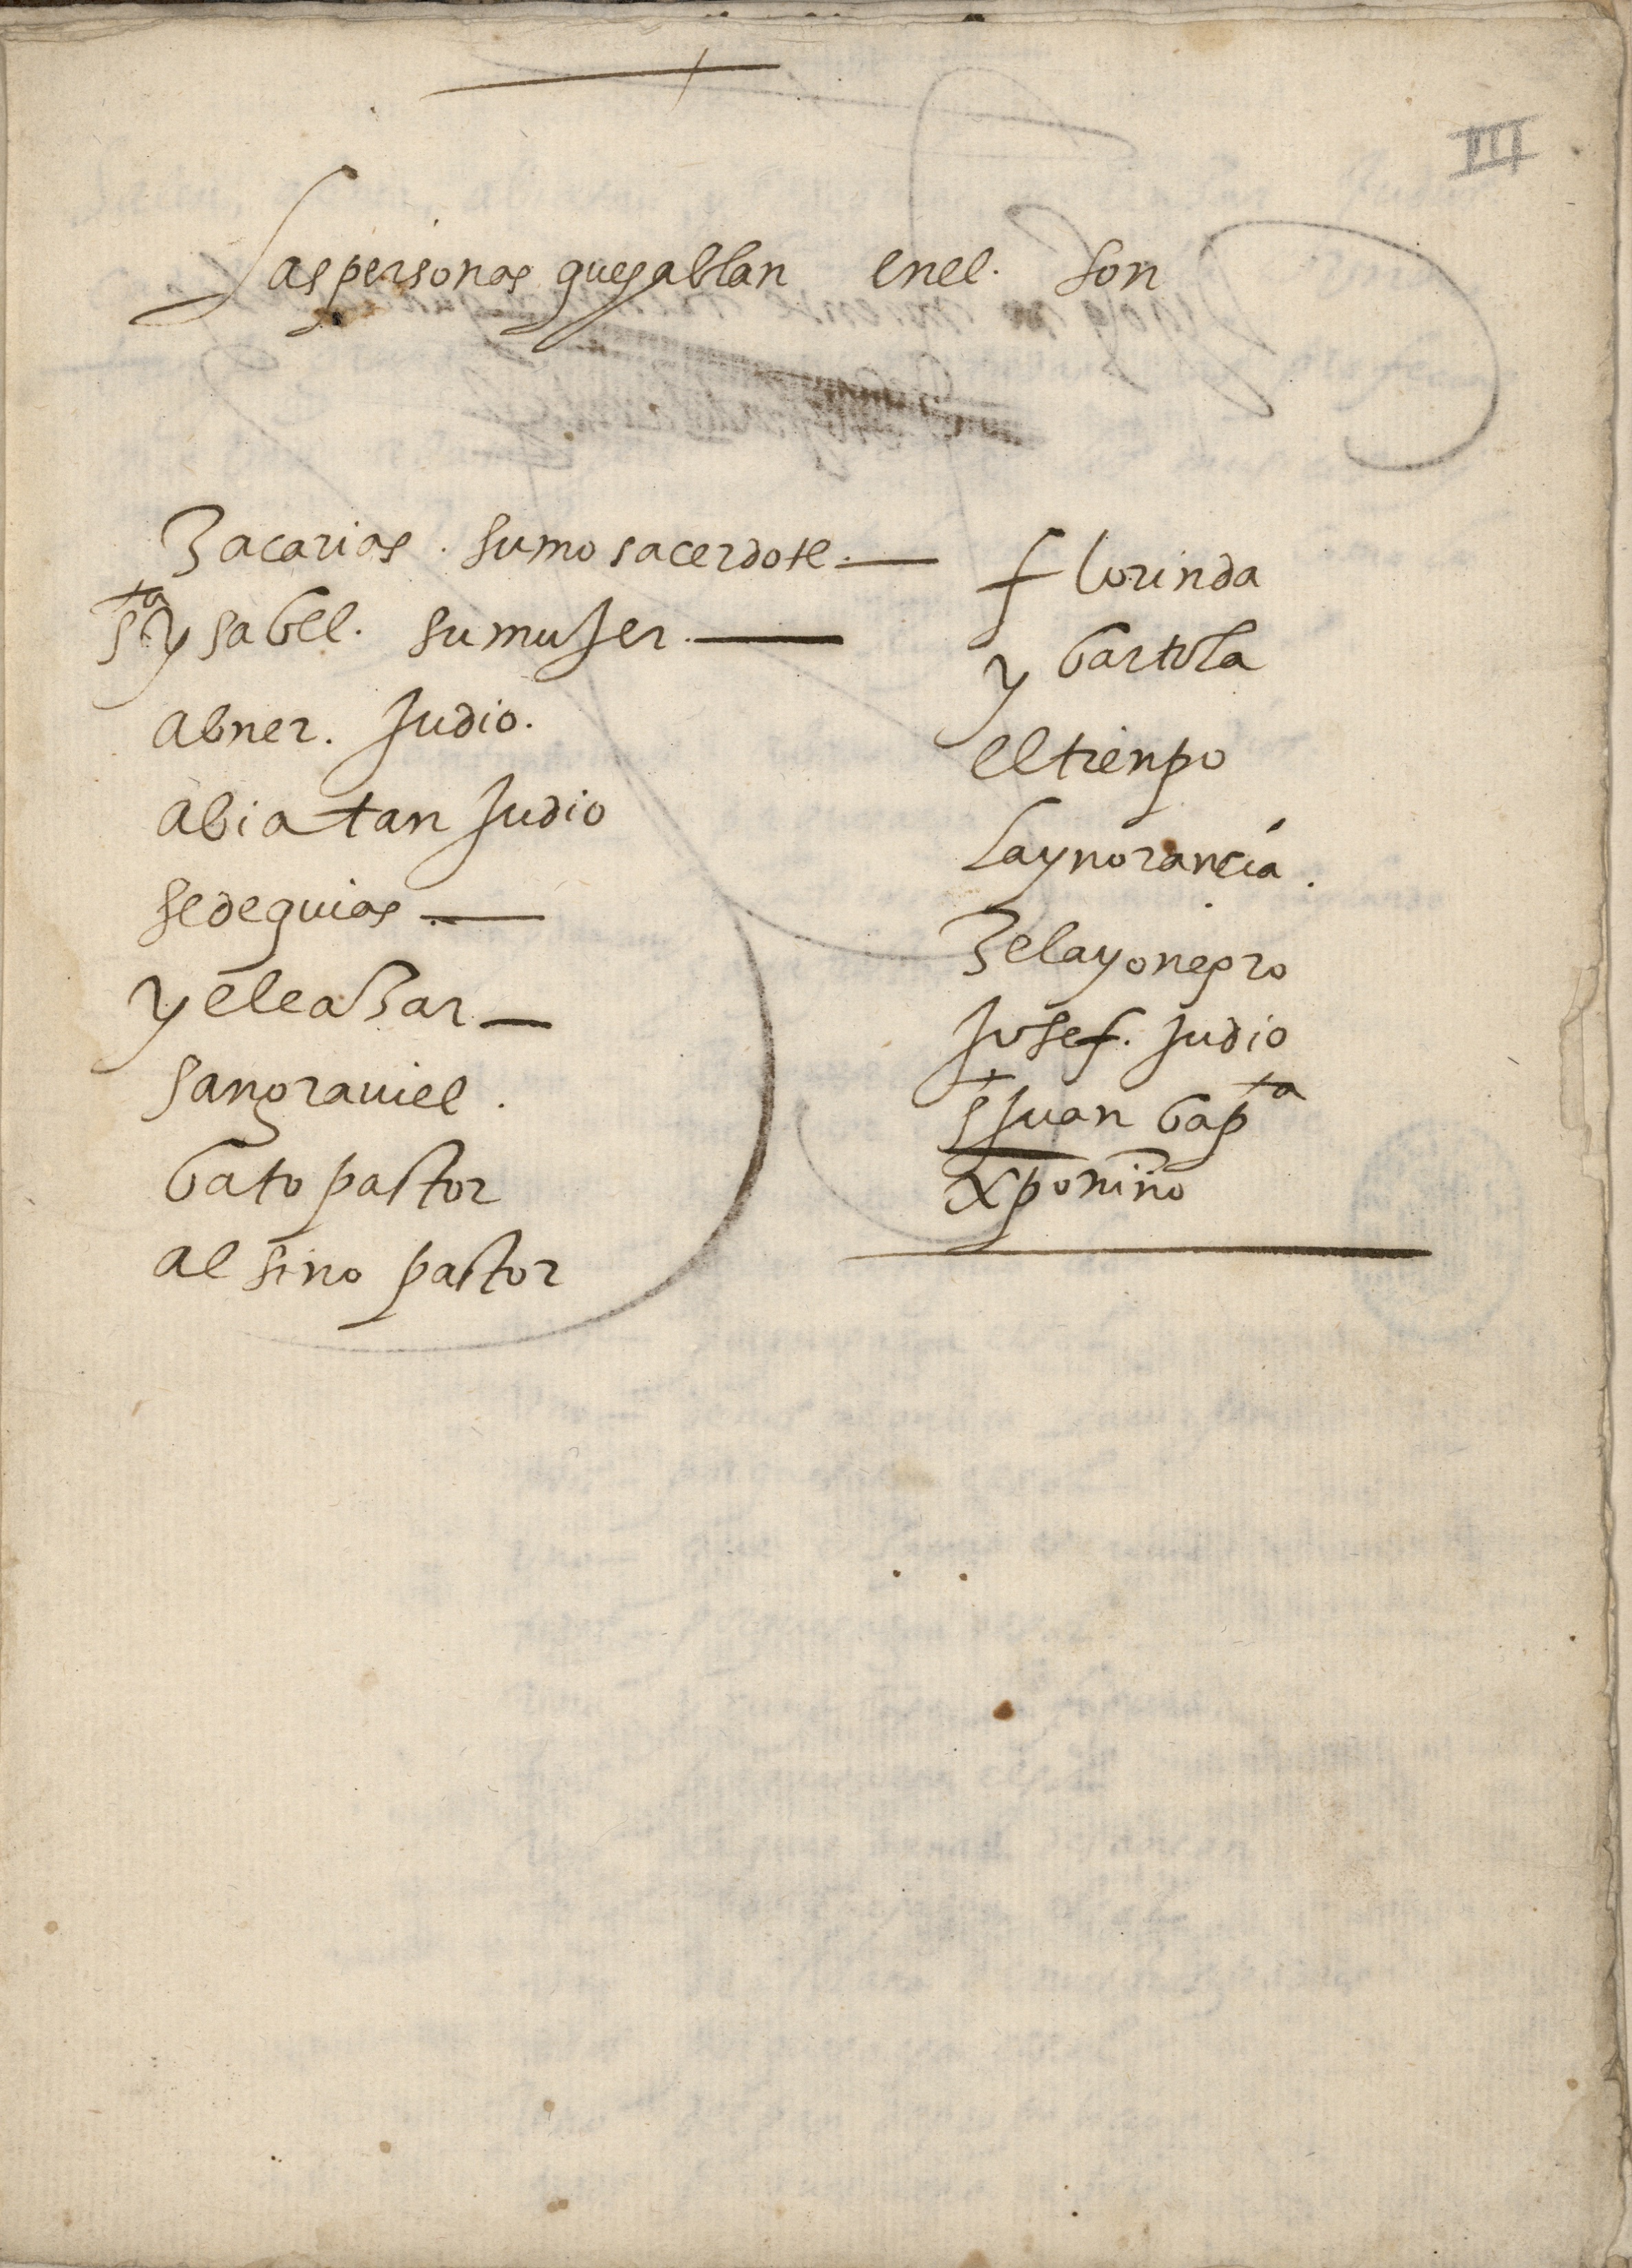 III
Las personas que ablan en el. son
Zacarias. sumo sacerdote.
sta ysabel. su muger.
abner. Judio.
abiatan Judio
sedequias
y eleazar
san graviel.
bato pastor
alsino pastor
florinda
y bartola
el tienpo
La ynorancia.
Zelayo negro
Josef. Judio
s Juan bapta
xpo niño